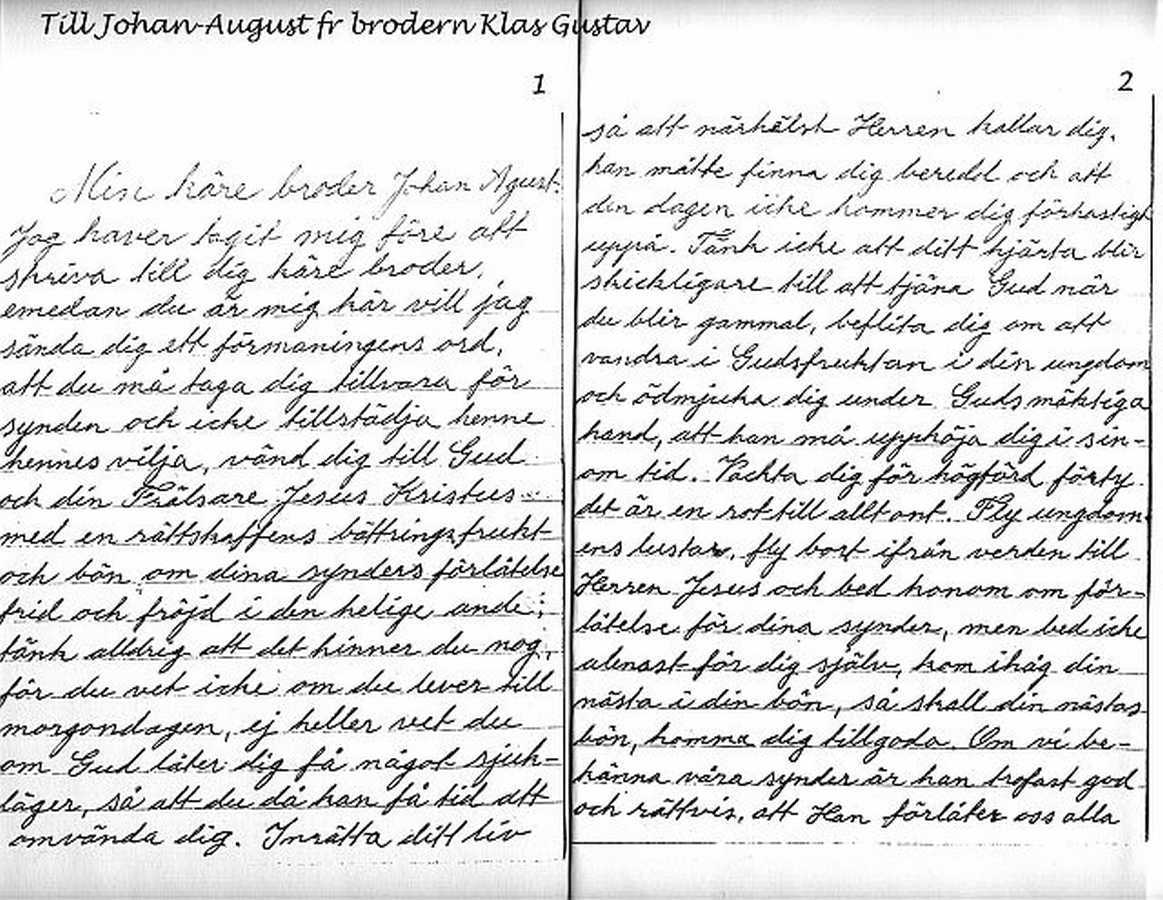 Till Johan-August fr brodern Klas Gustav
1
Min käre broder Johan Agust.
Jag haver tagit mig före att
skriva till dig käre broder,
emedan du är mig kär vill jag
sända dig ett förmaningens ord,
att du må taga dig tillvara för
synden och icke tillstädja henne
hennes vilja, vänd dig till Gud
och din Frälsare Jesus Kristus
med en rättskaffens bättringsfrukt
och bön om dina synders förlåtelse
frid och fröjd i den helige ande;
tänk alldrig att det hinner du nog,
för du vet icke om du lever till
morgondagen, ej heller vet du
om Gud låter dig få något sjuk-
läger, så att du då kan få tid att
omvända dig. Inrätta ditt liv
2
så att närhälst Herren kallar dig,
han måtte finna dig beredd och att
den dagen icke kommer dig förhastigt
uppå. Tänk icke att ditt hjärta blir
skickligare till att tjäna Gud när
du blir gammal, beflita dig om att
vandra i Gudsfruktan i din ungdom
och ödmjuka dig under Guds mäktiga
hand, att han må upphöja dig i sin-
om tid. Vackta dig för högfärd förty
det är en rot till allt ont. Fly ungdom-
ens lustar, fly bort ifrån verden till
Herren Jesus och bed honom om för-
låtelse för dina synder, men bed icke
alenast för dig själv, kom ihåg din
nästa i din bön, så skall din nästas
bön, komma dig tillgodo. Om vi be-
känna våra synder är han trofast god
och rättvis, att Han förlåter oss alla